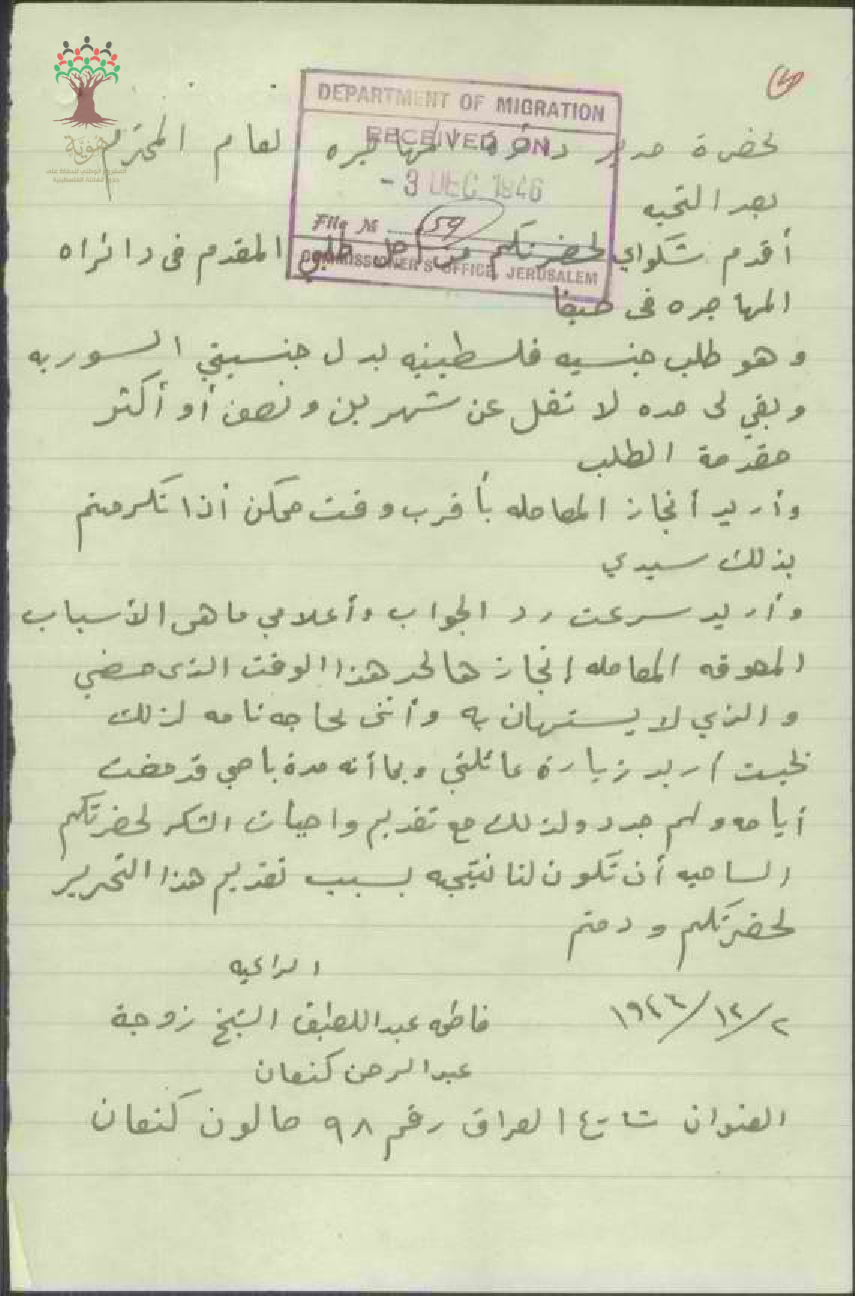 لحضرة مدير دائرة المهاجره العام المحترم
DEPARTMENT OF MIGRATION
RECEIVED ON
- 3 DEC 1946
File № 159
COMMISSIONER'S OFFICE, JERUSALEM
هوية
بعد التحيه
أقدم شكواي لحضرتكم من أجل طلبي المقدم فى دائراه
المهاجره فى حيفا
وهو طلب جنسيه فلسطينيه بدل جنسيتي السوريه
وبقي لى مده لا تقل عن شهرين ونصف أو أكثر
مقدمة الطلب
وأريد أنجاز المعامله بأقرب وقت ممكن أذا تكرمتم
بذلك سيدي
وأريد سرعت رد الجواب وأعلامي ما هى الأسباب
المعوقه المعامله إنجازها لحد هذا الوقت الذى مضي
والذي لا يستهان به وأننى بحاجه تامه لذلك
بحيث أريد زيارة عائلتي وبما أنه مدة باصي قد مضت
أيامه ولم جدد ولذلك مع تقديم واجبات الشكر لحضرتكم
الساميه أن تكون لنا نتيجه بسبب تقديم هذا التحرير
لحضرتكم ودمتم
الداعيه
٢/١٢/١٩٤٦ فاطمه عبداللطيف الشيخ زوجة
عبدالرحمن كنعان
العنوان شارع العراق رقم ٩٨ صالون كنعان